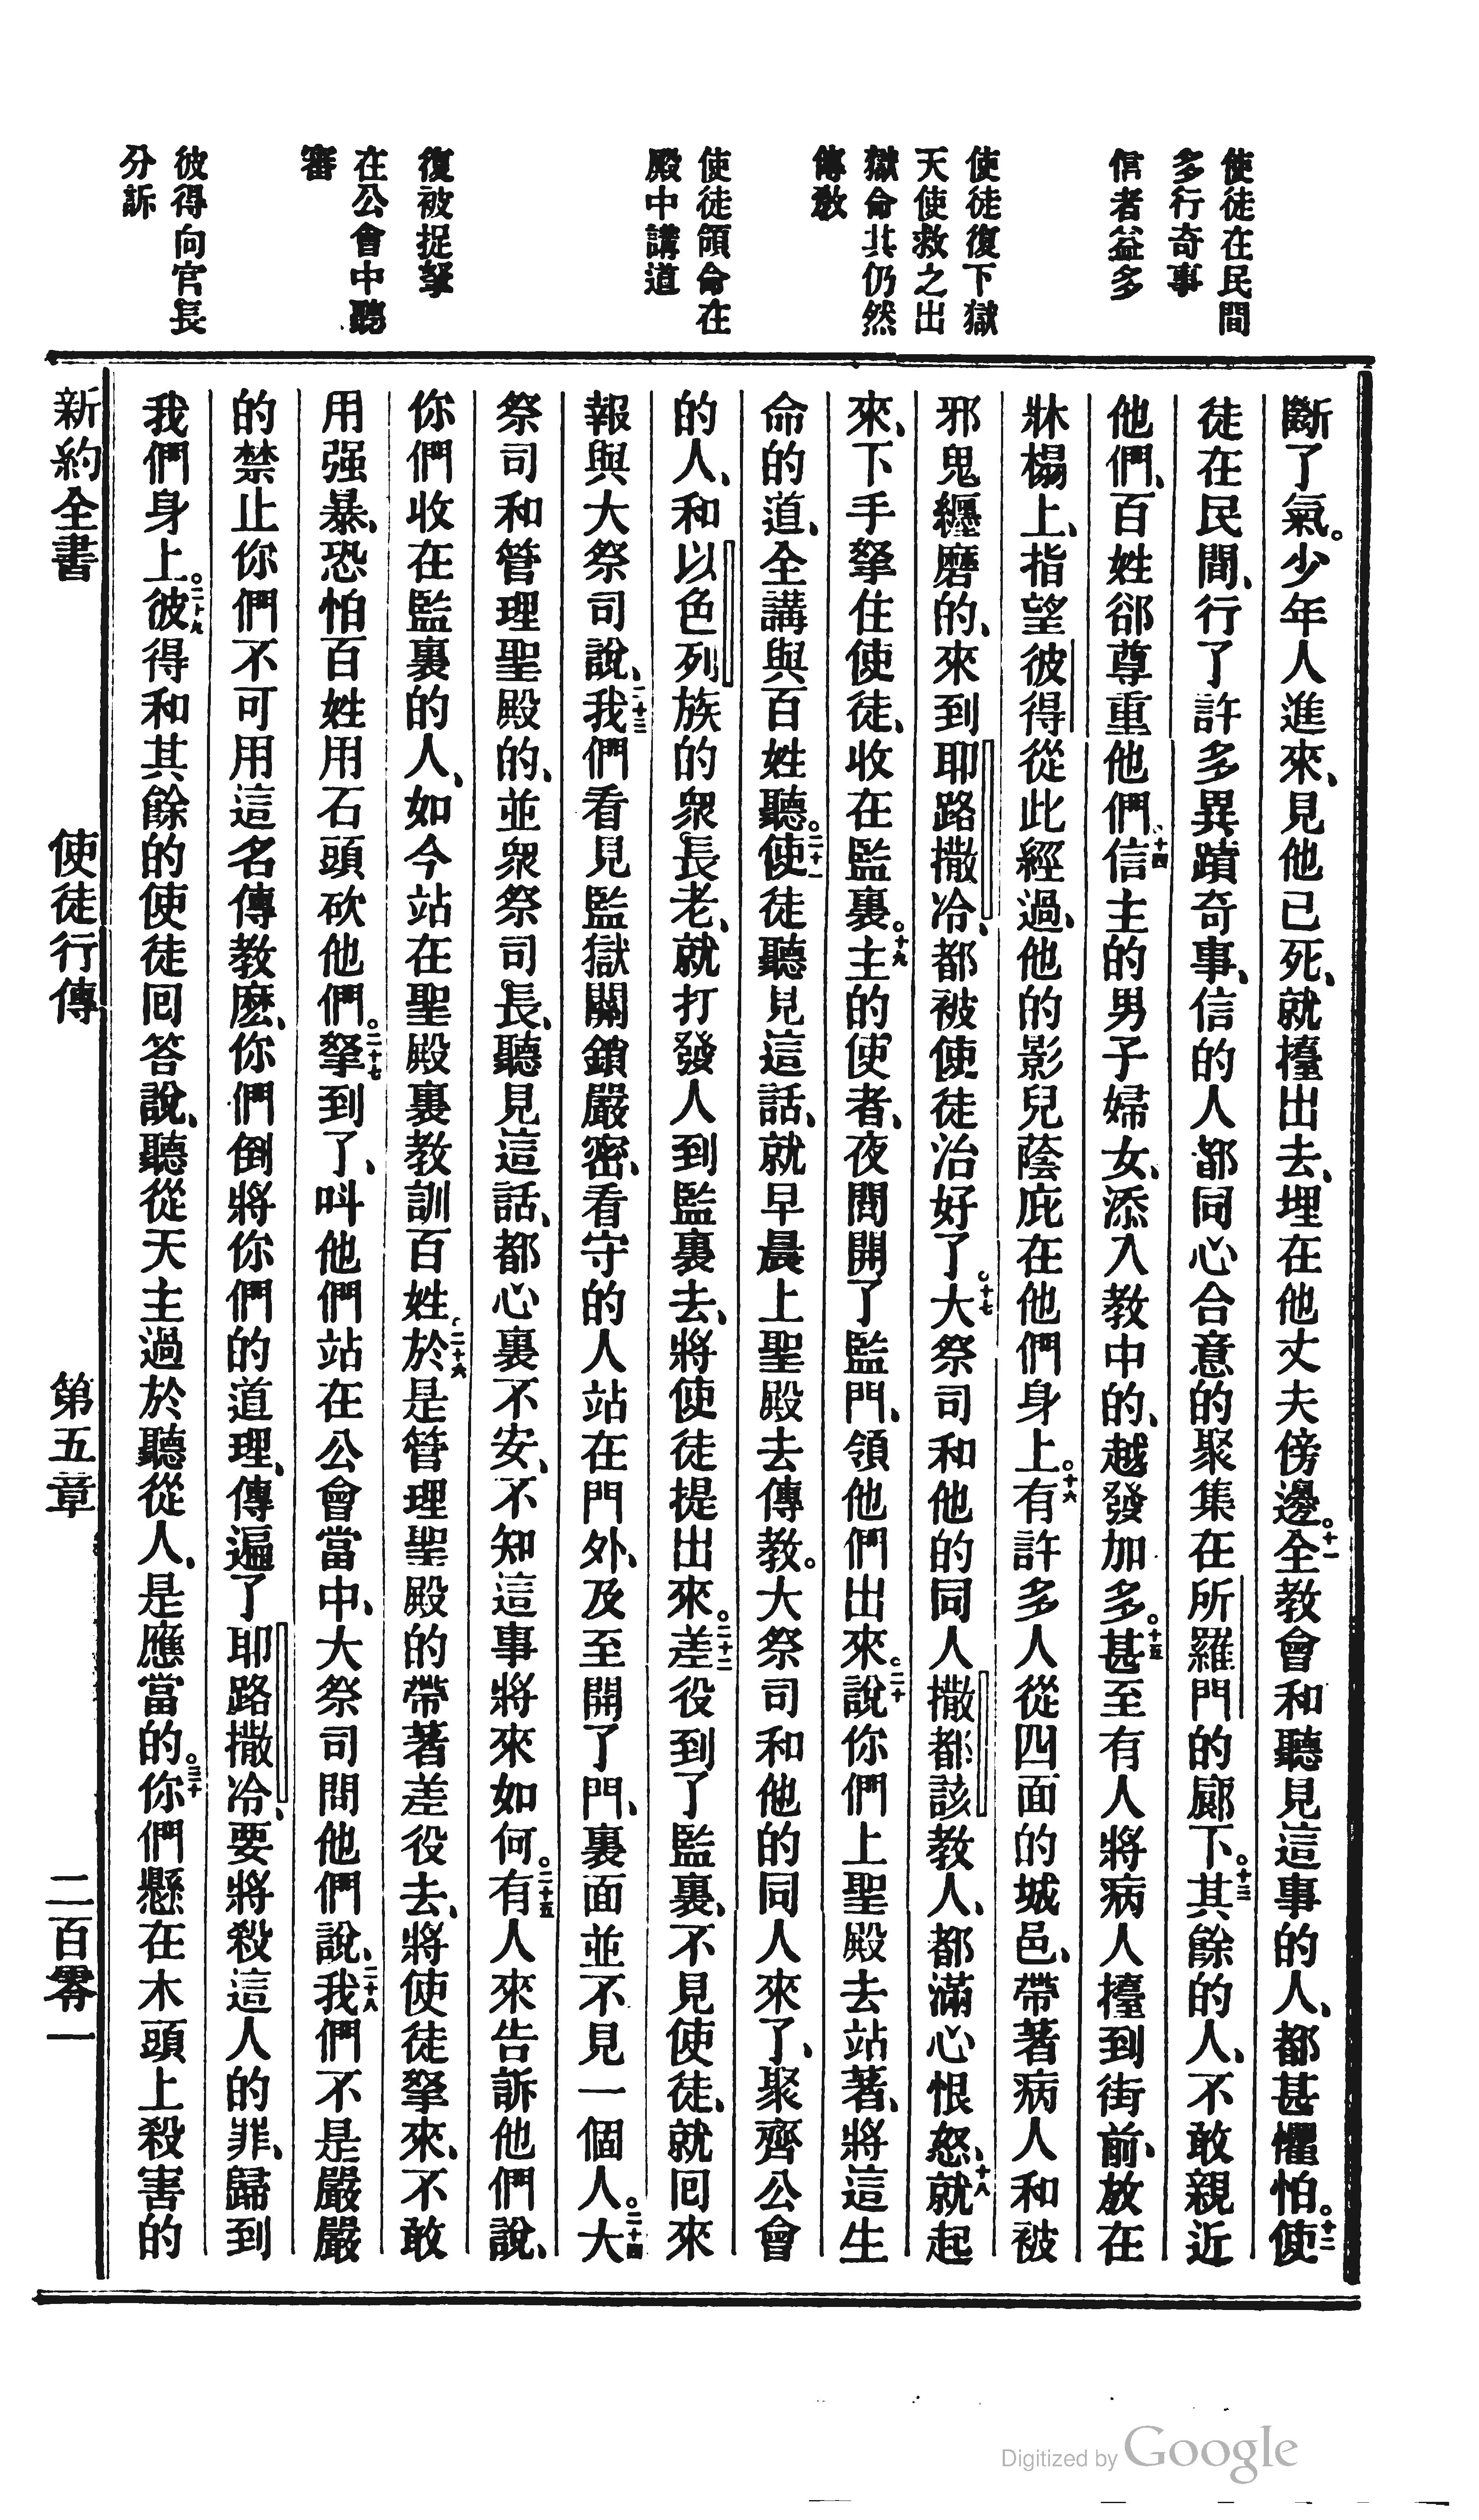 使徒在民間
多行奇事
信者益多
使徒復下獄
天使救之出
獄命其仍然
傳敎
使徒領命在
殿中講道
復被捉拏
在公會中聽
審
彼得向官長
分訴
斷了氣。少年人進來、見他已死、就擡出去、埋在他丈夫傍邊。十一全教會和聽見這事的人、都甚懼怕。十二使
徒在民間、行了許多異蹟奇事、信的人都同心合意的聚集在所羅門的廊下。十三其餘的人、不敢親近
他們、百姓卻尊重他們、十四信主的男子婦女、添入教中的、越發加多。十五甚至有人將病人擡到街前、放在
牀榻上、指望彼得從此經過、他的影兒蔭庇在他們身上。十六有許多人從四面的城邑、帶著病人和被
邪鬼纏磨的、來到耶路撒冷、都被使徒治好了。十七大祭司和他的同人撒都該教人、都滿心恨怒、十八就起
來、下手拏住使徒、收在監裏。十九主的使者、夜間開了監門、領他們出來。二十說你們上聖殿去站著、將這生
命的道、全講與百姓聽。二十一使徒聽見這話、就早晨上聖殿去傳教。大祭司和他的同人來了、聚齊公會
的人、和以色列族的衆長老、就打發人到監裏去、將使徒提出來。二十二差役到了監裏、不見使徒、就回來
報與大祭司說、二十三我們看見監獄關鎖嚴密、看守的人站在門外、及至開了門、裏面並不見一個人。二十四大
祭司和管理聖殿的、並衆祭司長、聽見這話、都心裏不安、不知這事將來如何。二十五有人來告訴他們說、
你們收在監裏的人、如今站在聖殿裏教訓百姓。二十六於是管理聖殿的帶著差役去、將使徒拏來、不敢
用强暴、恐怕百姓用石頭砍他們。二十七拏到了、呌他們站在公會當中、大祭司問他們說、二十八我們不是嚴嚴
的禁止你們不可用這名傳教麽、你們倒將你們的道理、傳遍了耶路撒冷、要將殺這人的罪、歸到
我們身上。二十九彼得和其餘的使徒回答說、聽從天主過於聽從人、是應當的。三十你們懸在木頭上殺害的
新約全書 使徒行傳 第五章 二百零一
Digitized by Google